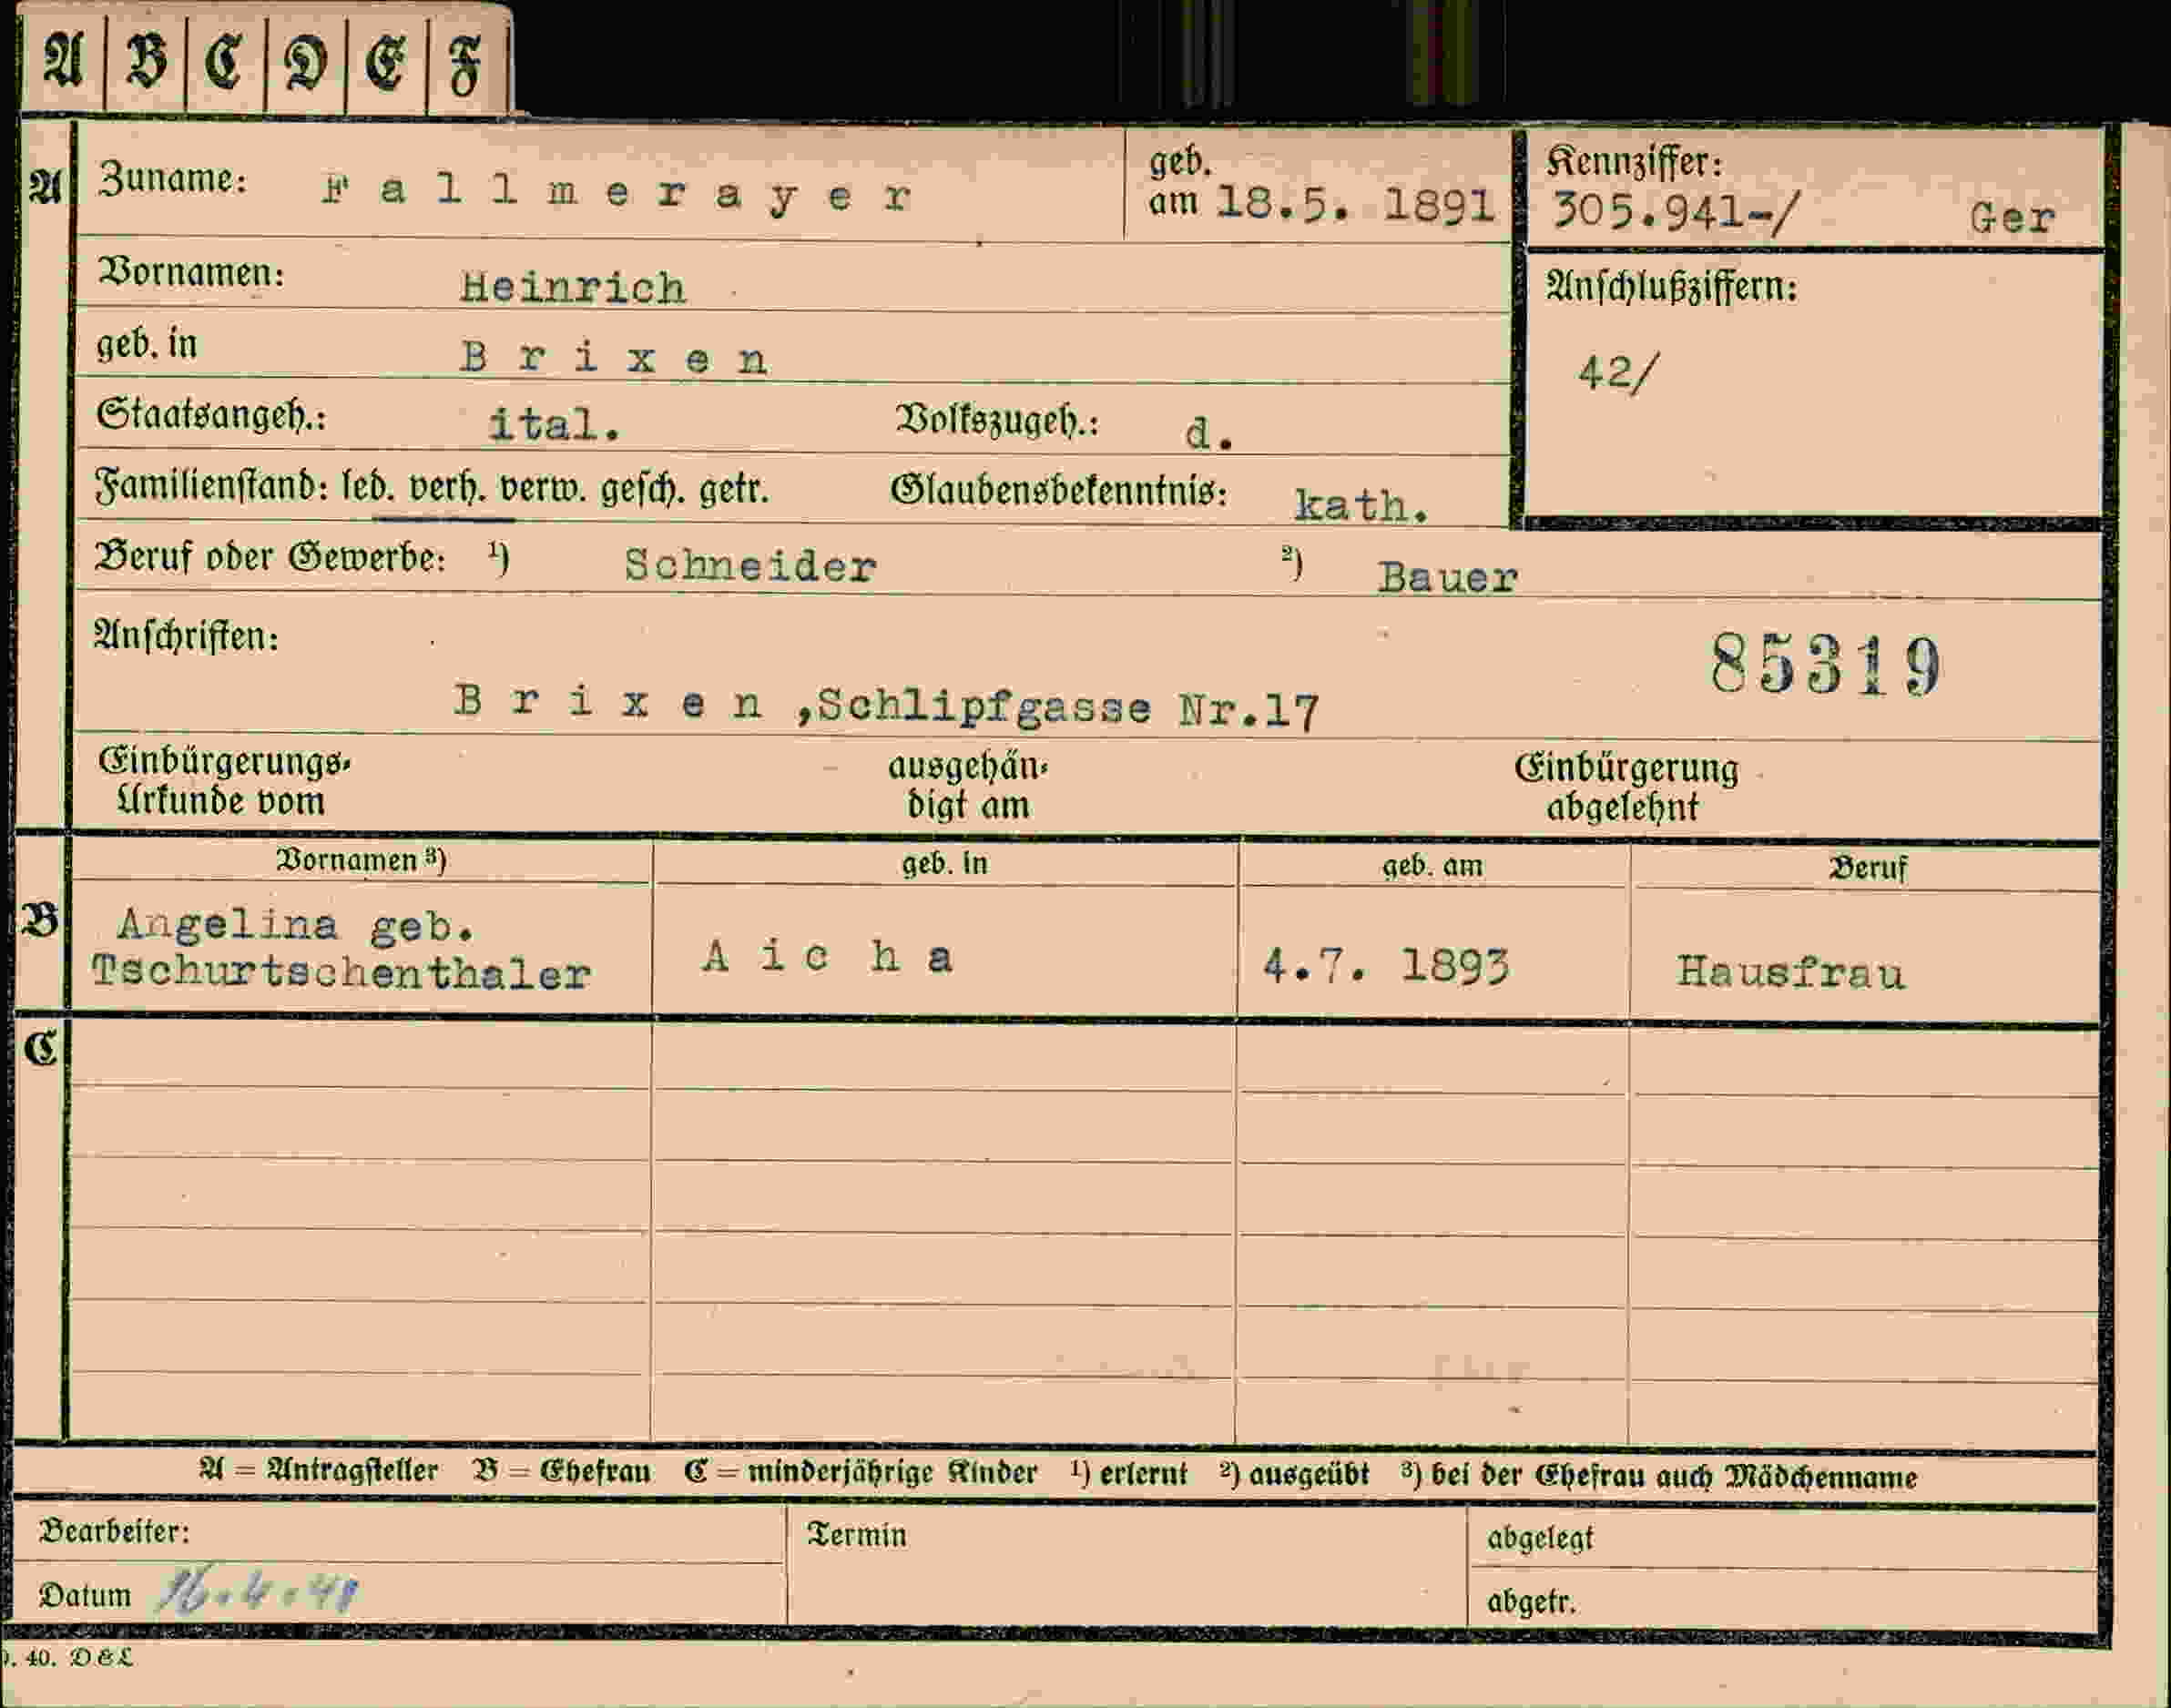 A B C D E F
A Zuname: Fallmerayer geb. am 18.5. 1891 Kennziffer: 305.941-/ Ger
Vornamen: Heinrich Anschlußziffern:
geb. in Brixen 42/
Staatsangeh.: ital. Volkszugeh.: d.
Familienstand: led. verh. verw. gesch. getr. Glaubensbekenntnis: kath.
Beruf oder Gewerbe: ¹) Schneider ²) Bauer
Anschriften: 85319
Brixen ,Schlipfgasse Nr.17
Einbürgerungs- ausgehän- Einbürgerung
Urkunde vom digt am abgelehnt
Vornamen ³) geb. in geb. am Beruf
B Angelina geb.
Tschurtschenthaler Aicha 4.7. 1893 Hausfrau
C
A = Antragsteller B = Ehefrau C = minderjährige Kinder ¹) erlernt ²) ausgeübt ³) bei der Ehefrau auch Mädchenname
Bearbeiter: Termin abgelegt
Datum abgetr.
40. D & L